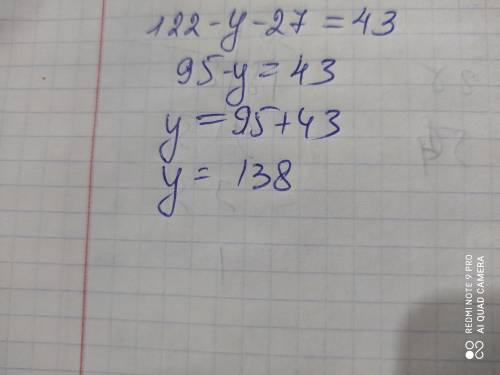 122-y-27=43
95-y=43
y=95+43
y= 138
REDMI NOTE 9 PRO
AI QUAD CAMERA